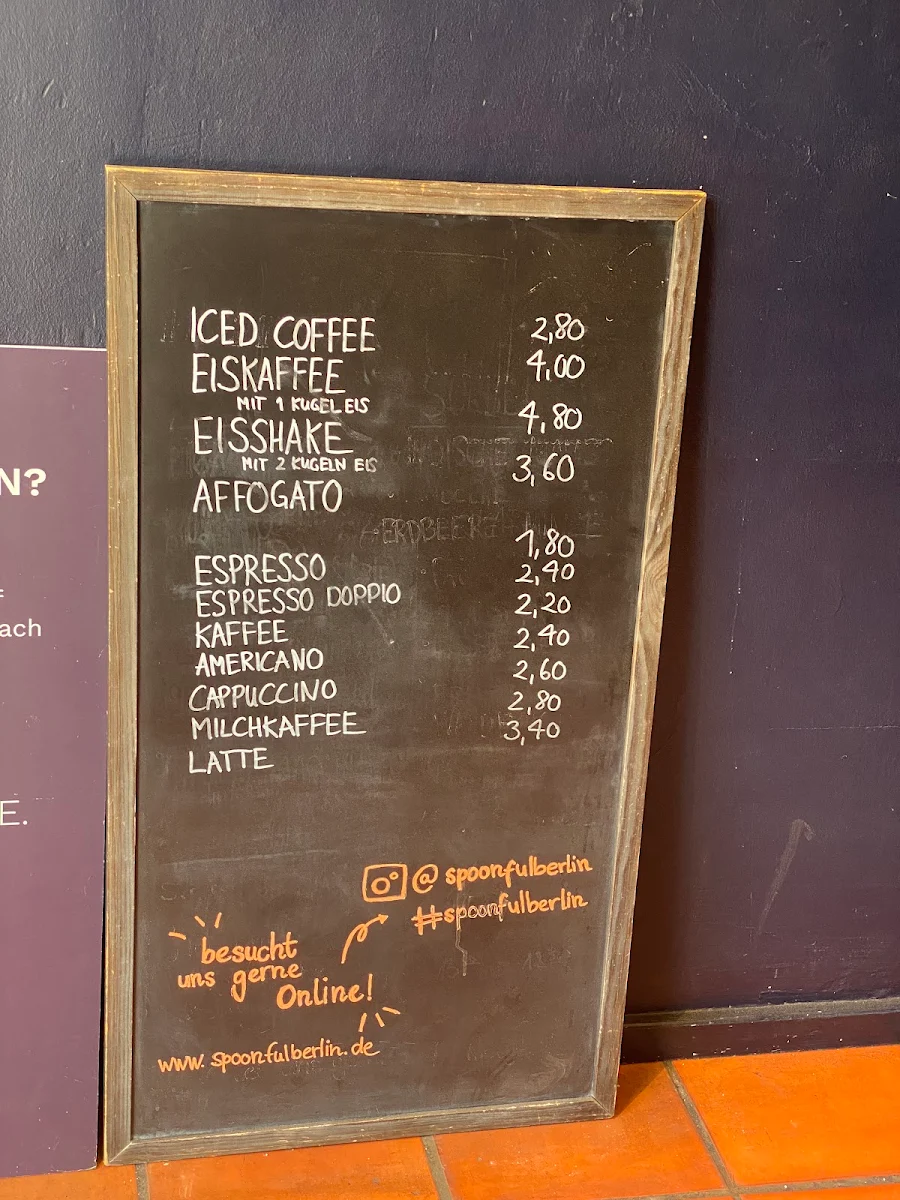 ICED COFFEE 2,80
EISKAFFEE 4,00
MIT 1 KUGEL EIS
EISSHAKE 4,80
MIT 2 KUGELN EIS
AFFOGATO 3,60
ERDBEERE
ESPRESSO 1,80
ESPRESSO DOPPIO 2,40
KAFFEE 2,20
AMERICANO 2,40
CAPPUCCINO 2,60
MILCHKAFFEE 2,80
LATTE 3,40
@spoonfulberlin
#spoonfulberlin
besucht
uns gerne
Online!
www.spoonfulberlin.de
N?
ach
E.